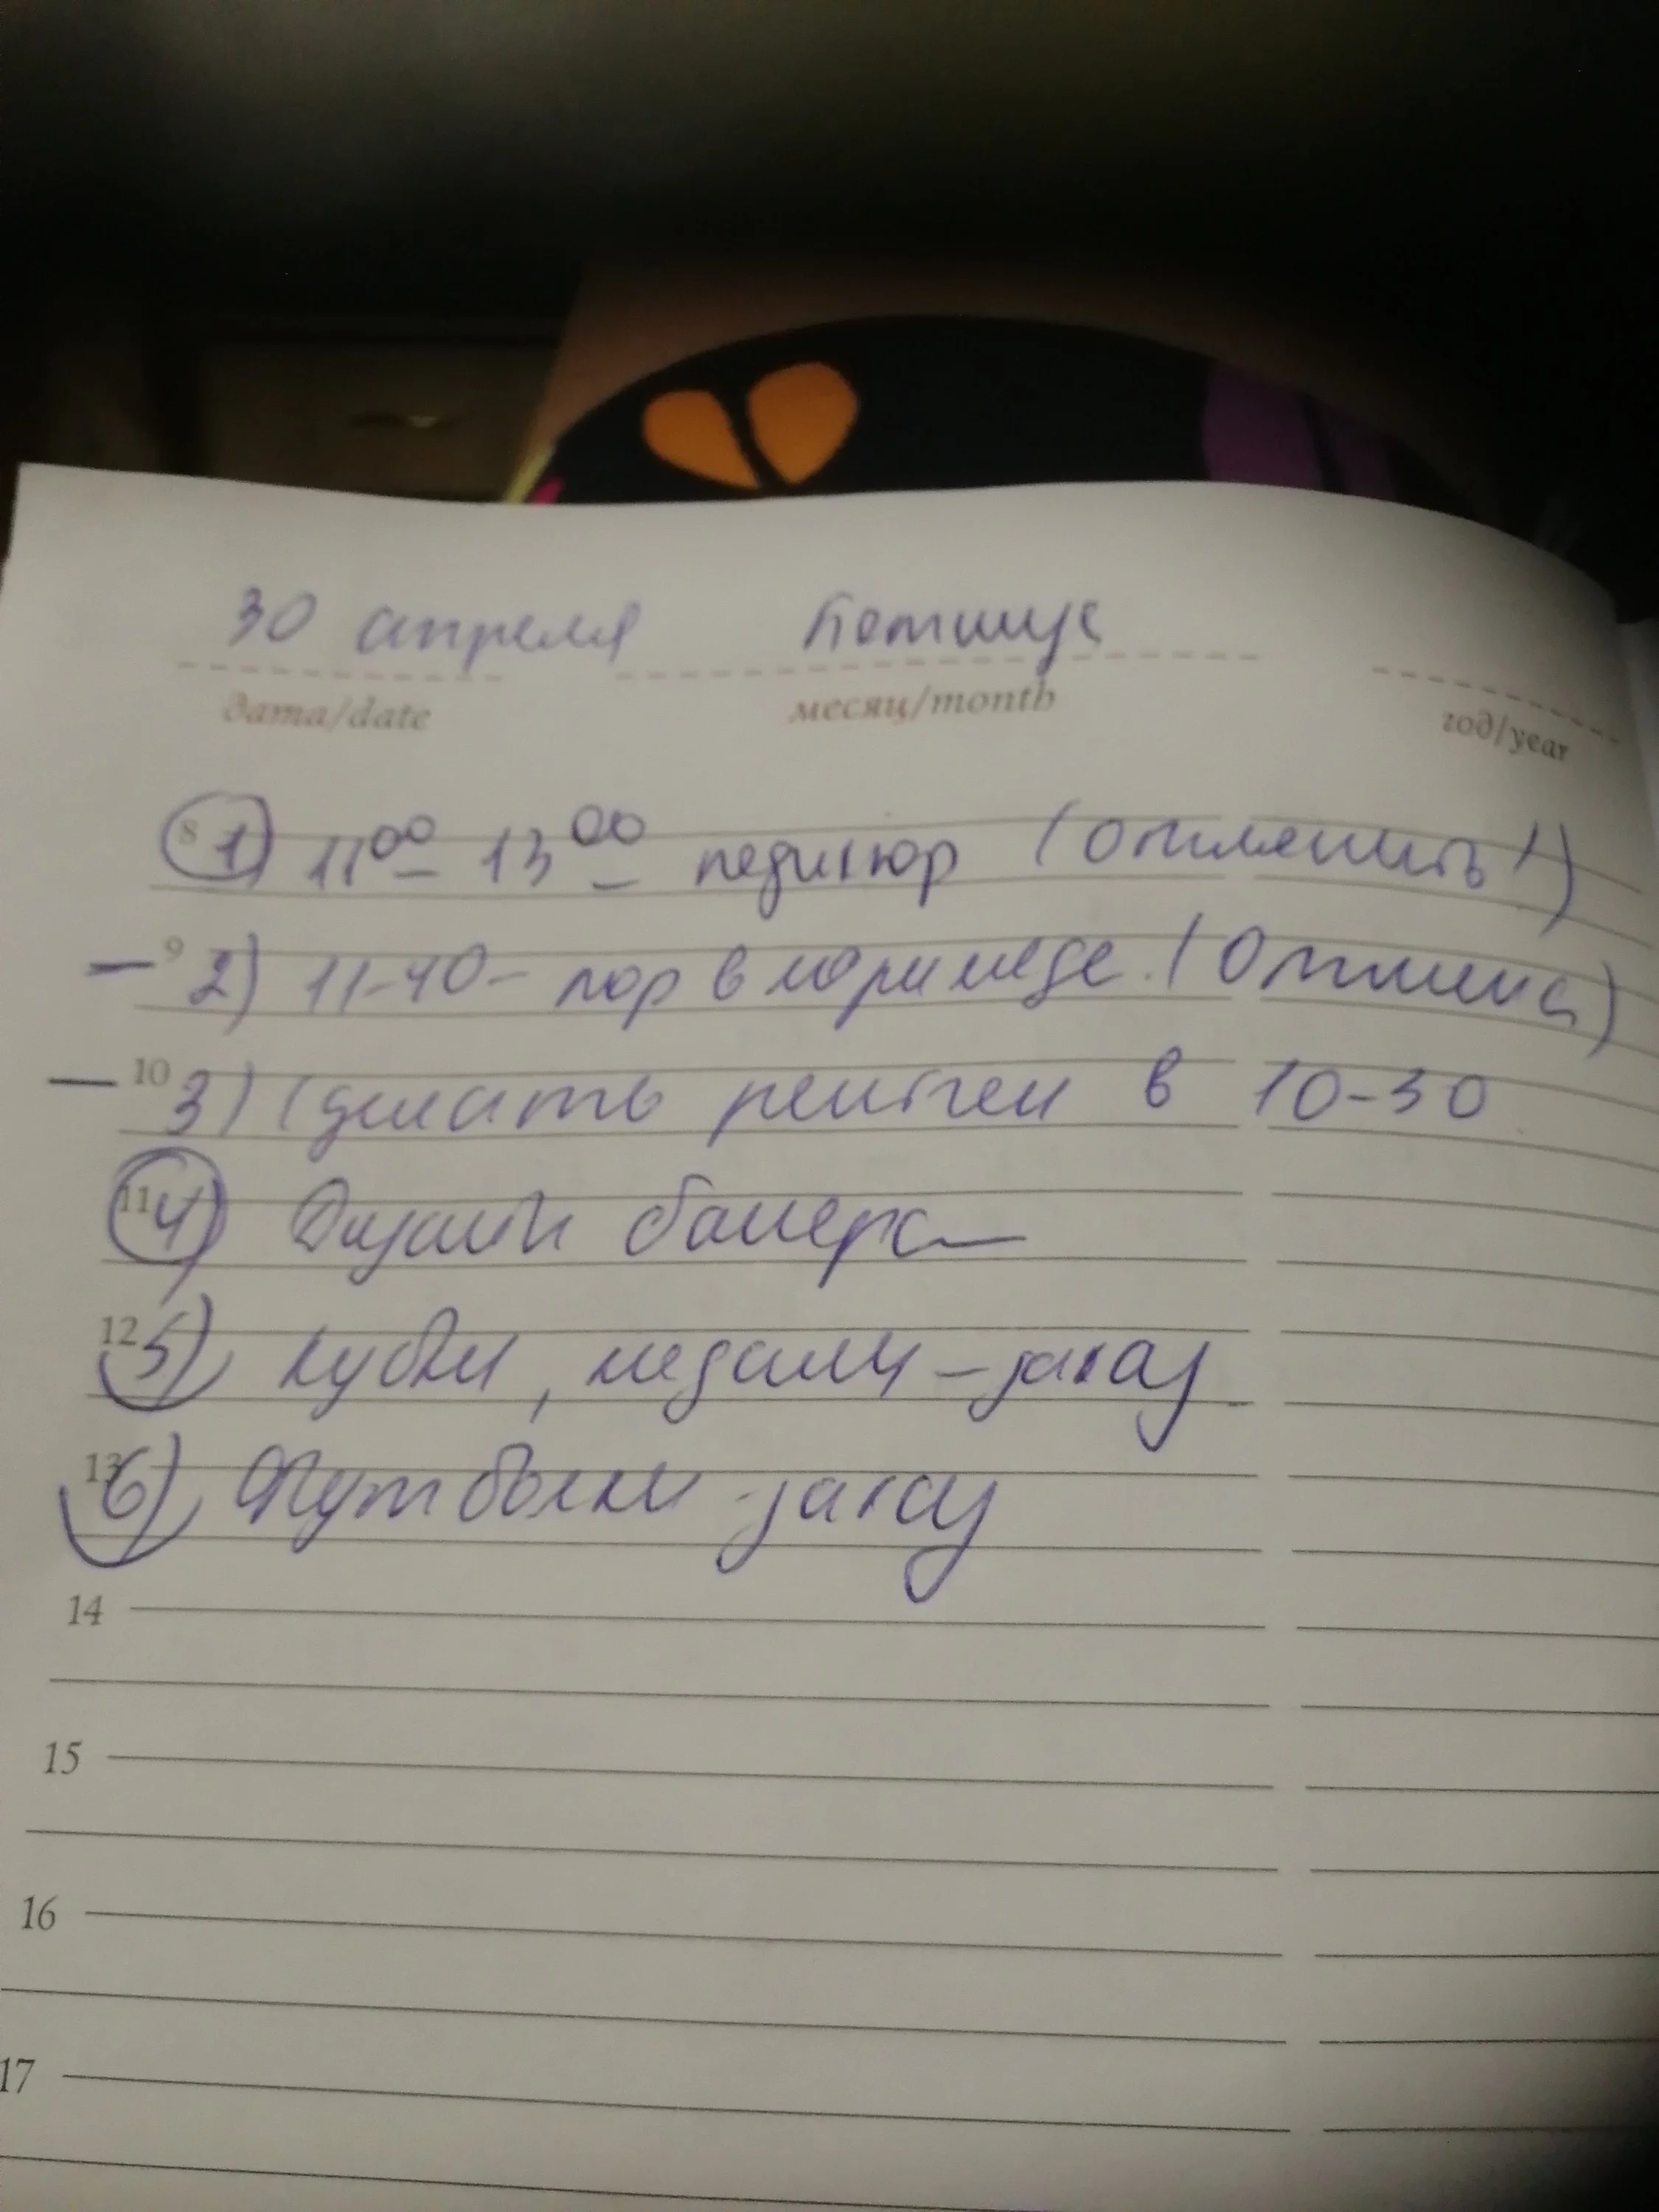 30 апреля
дата/date месяц/month год/year
8 1) 11⁰⁰ 13⁰⁰ педикюр (отменить!)
9 2) 11-40 - лор в (Отмена)
10 3) Сделать рентген в 10-30
11 4) Дизайн банера
12 5) Кубки, медали - заказ
13 6) Футболки - заказ
14
15
16
17